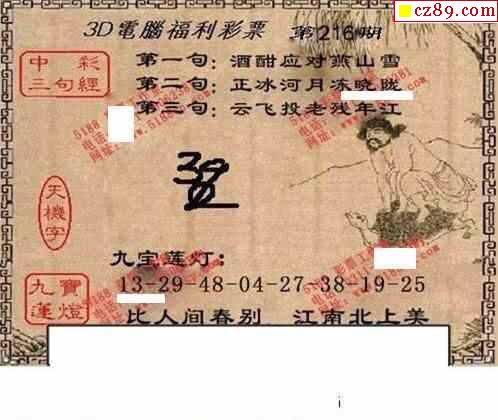 cz89.com
3D電腦福利彩票 第216期
中彩
三句經
第一句：酒酣应对燕山雪
第二句：正冰河月冻晓陇
第三句：云飞投老残年江
天機字
九宝莲灯：
九寶
蓮燈
13-29-48-04-27-38-19-25
比人间春别 江南北上美